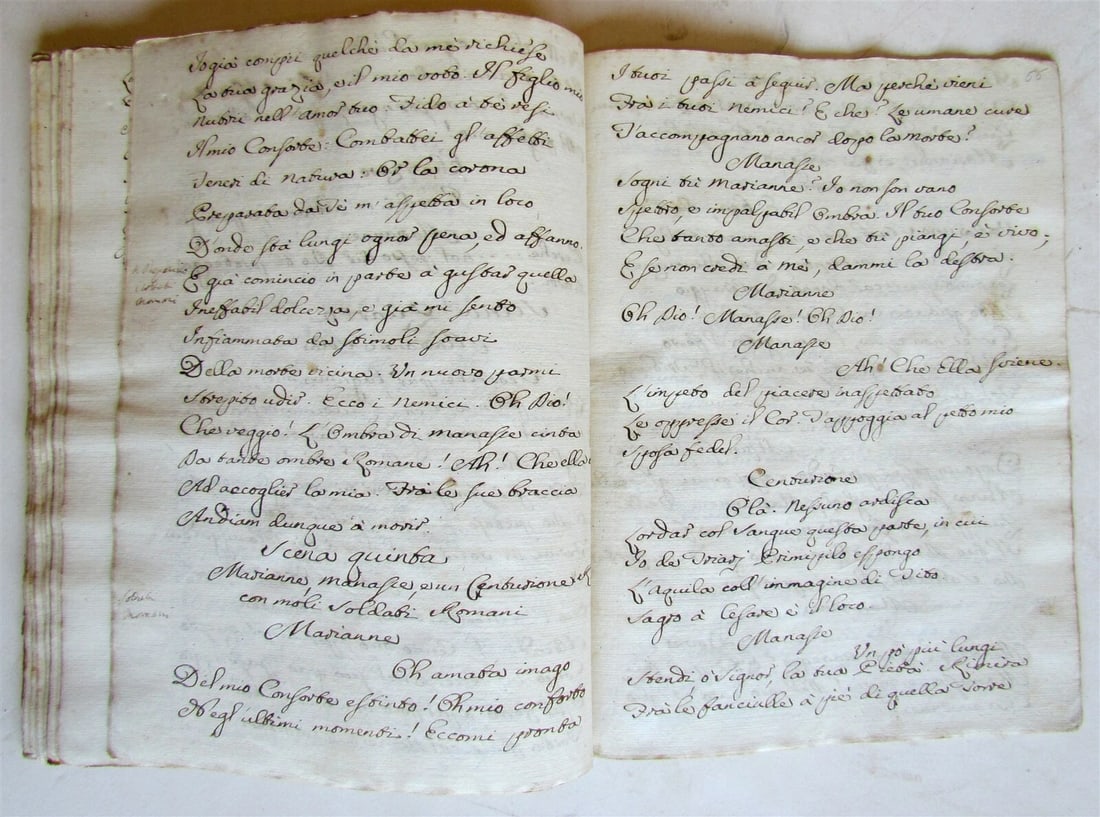 Io già compii quelchè da mè richiese
La tua grazia, e il mio voto. Il figlio mio
Nutrii nell'amor tuo: Fido à tè resi
Il mio Consorte: Combattei gl'affetti
Teneri di natura: Or la corona
Preparata da Tè m'aspetta in loco
Donde stà lungi ognor pena, ed affanno.
E già comincio in parte à gustar quella
Ineffabil dolcezza, e già mi sento
Infiammata da stimoli soavi
Della morte vicina. Un nuovo parmi
Strepito udir. Ecco i nemici. Oh Dio!
Che veggio! L'Ombra di Manasse cinta
Da tante ombre Romane! Ah! Che ella
Ad accoglier la mia. Frà le sue braccia
Andiam dunque à morir.
Scena quinta
Marianne, Manasse, e un Centurione
con molti Soldati Romani
Marianne
Oh amata imago
Del mio Consorte estinto! Oh mio conforto
Negl'ultimi momenti! Eccomi pronta
66
I tuoi passi à seguir. Ma perchè vieni
Frà i tuoi nemici? E che? Le umane cure
T'accompagnano ancor doppo la morte?
Manasse
Sogni tù Marianne? Io non son vano
Spettro, e impalpabil Ombra. Il tuo Consorte
Che tanto amasti, e che tù piangi, è vivo;
E se non credi à mè, dammi la destra.
Marianne
Oh Dio! Manasse! Oh Dio!
Manasse
Ah! Che Ella sviene.
L'impeto del piacere inaspettato
Le oppresse il Cor. T'appoggia al petto mio
Sposa fedel.
Centurione
Olà. Nessuno ardisca
Lordar col Sangue questa parte, in cui
Io de Triarj Primipilo espongo
L'Aquila coll'immagine di Tito
Sagro à Cesare è il loco
Manasse
Un pò più lungi
Stendi ò Signor, la tua Pietà. Rimira
Frà le fanciulle à piè di quella Torre